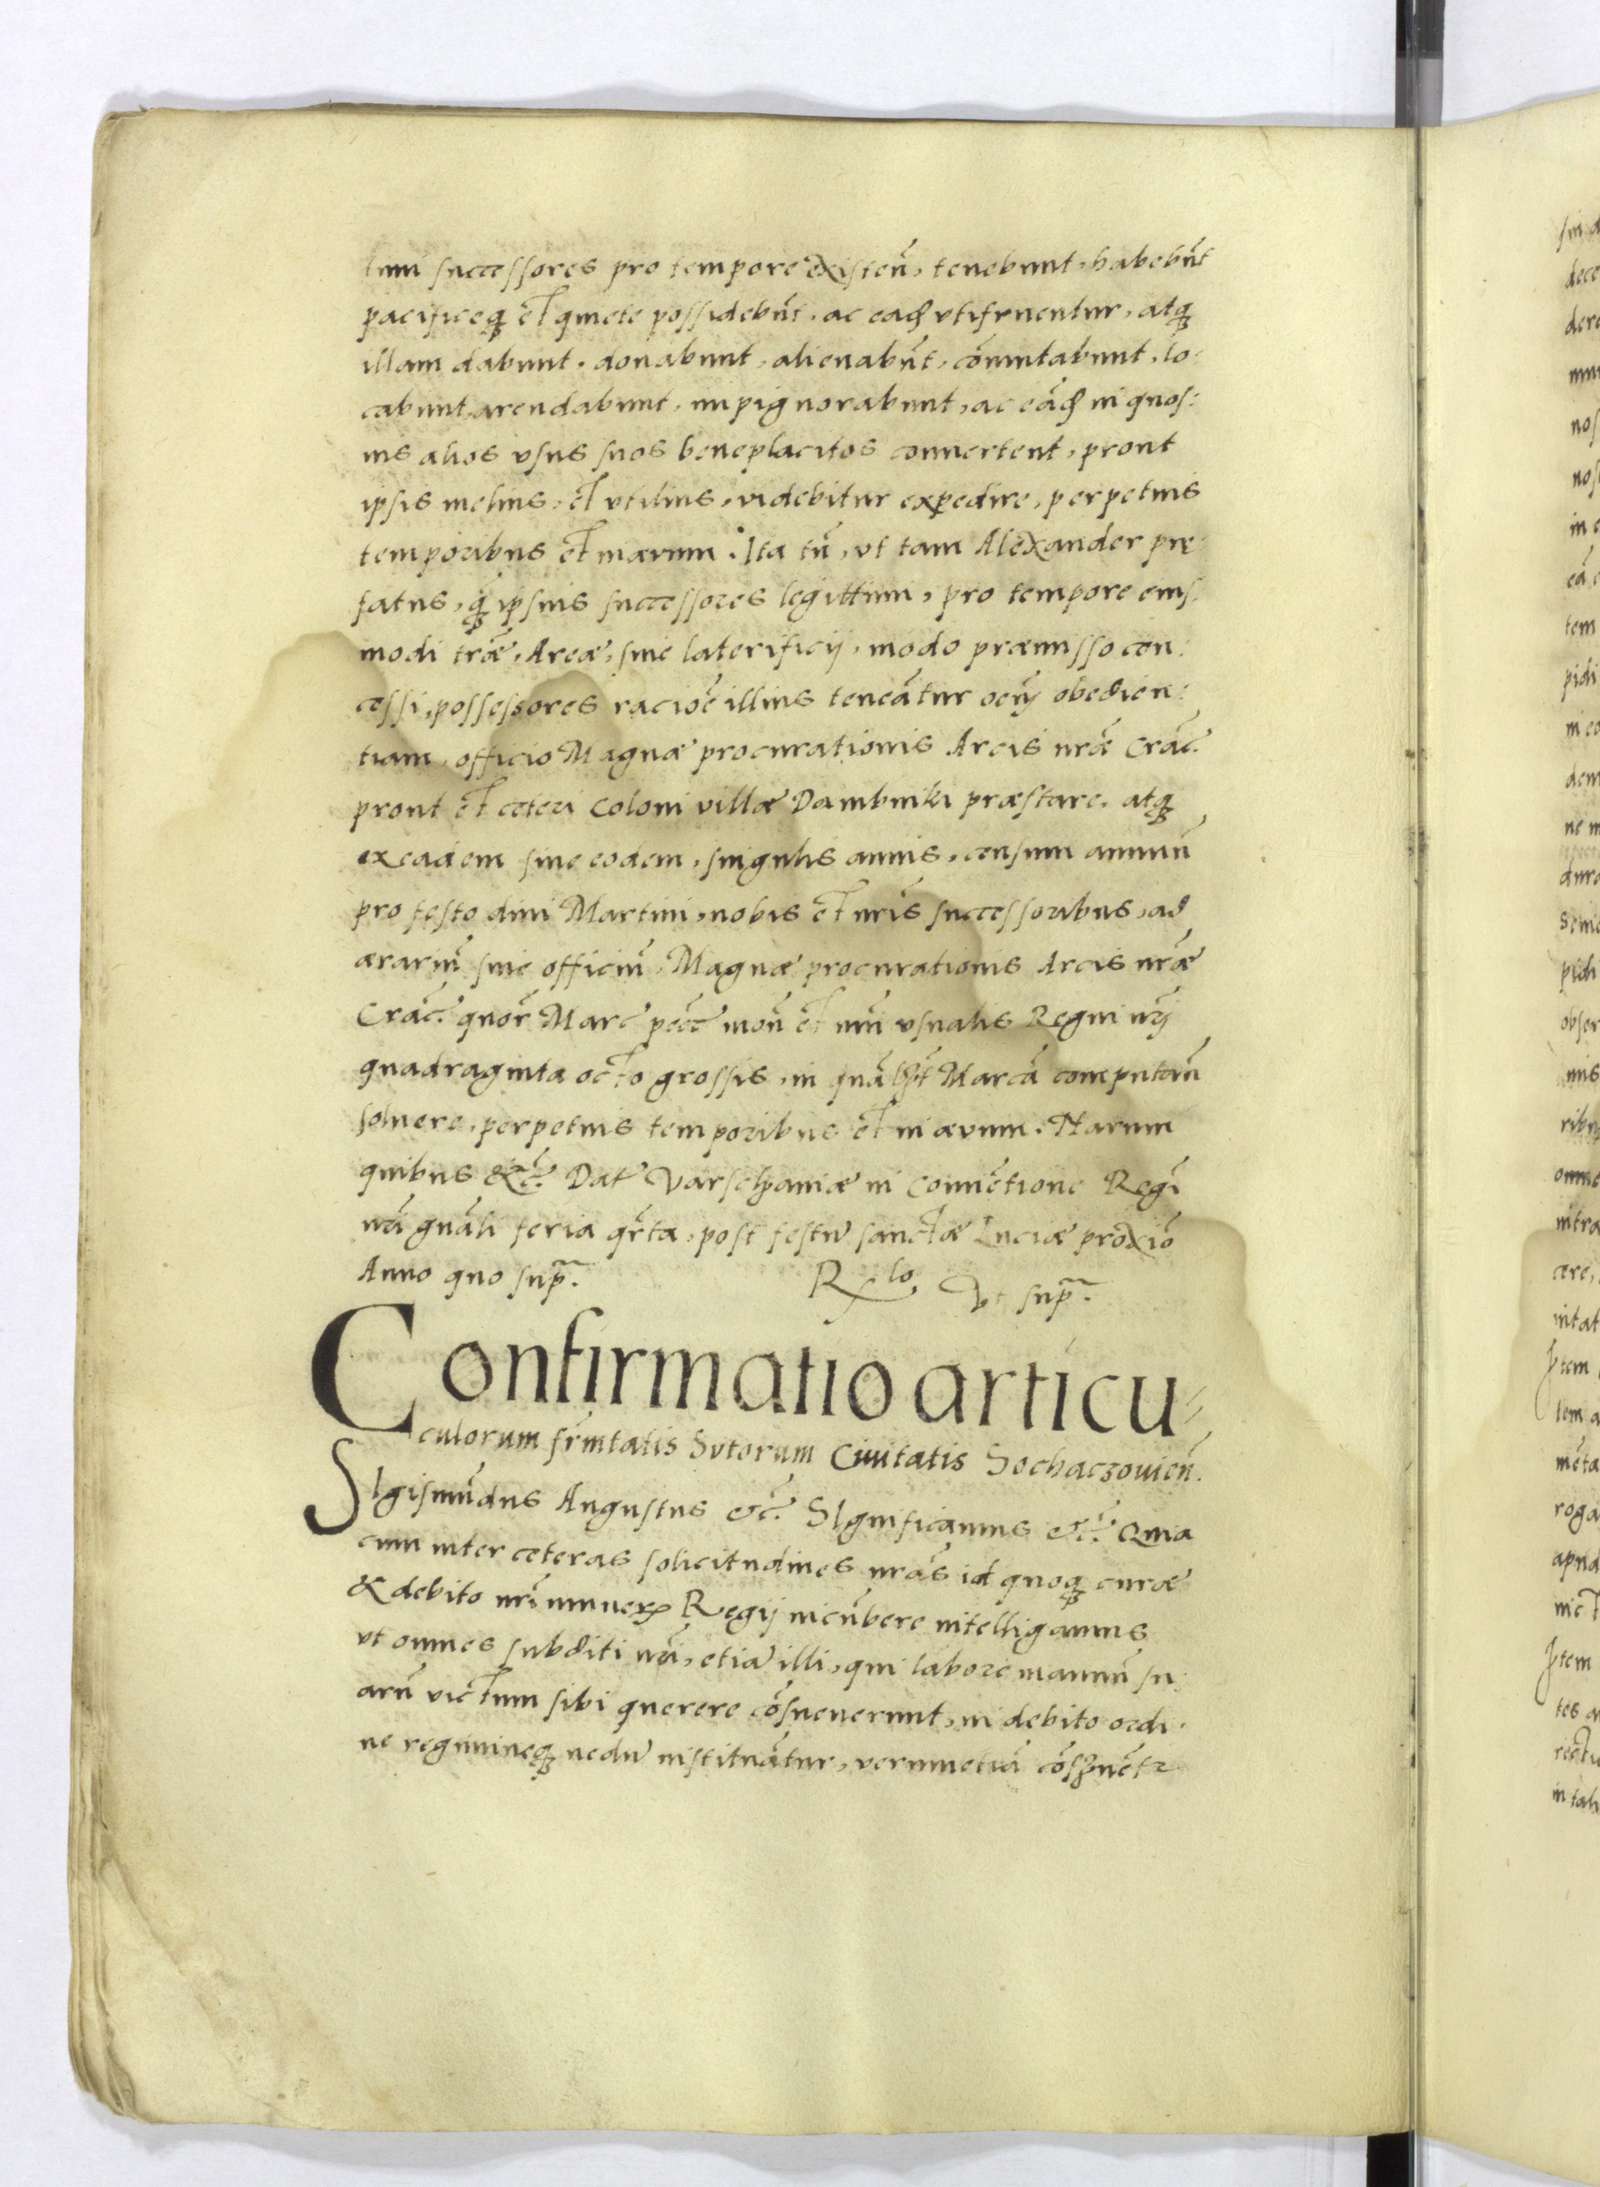 successores pro tempore existeñ, tenebunt, habebũt
pacificeq̃ et quiete possidebũt, ac eadẽ utifruentur, atq̃
illam dabunt, donabunt, alienabũt, cõmutabunt, lo:
cabunt, arendabunt, impignorabunt, ac eãdẽ in quos:
uis alios usus suos beneplacitos conuertent, prout
ipsis melius, et utilius, videbitur expedire, perpetuis
temporibus et in æuum. Ita tñ, ut tam Alexander prę:
fatus, q̃ ipsius successores legittimi, pro tempore eius:
modi træ̃, Areæ, siue laterificij, modo præmisso con:
cessi, possessores raciõe illius teneãtur oẽm obedien:
tiam, officio Magnæ procurationis Arcis nræ̃ Crac̃.
prout et ceteri Coloni villæ Dambniki præstare, atq̃
ex eadem siue eodem, singulis annis, censum annuũ
pro festo diui Martini, nobis et nris̃ successoribus, ad
ærariũ siue officiũ, Magnæ procurationis Arcis nræ̃
Crac̃. quor̃ Marc̃ pecc̃ moñ et nũi usualis Regni nr̃i
quadraginta octo grossis, in quãlibet Marcã computañ
soluere, perpetuis temporibus et in æuum. Harum
quibus &c̃. Dat̃ Varschauiæ in Conuẽtione Regñi
nr̃i gñali feria qr̃ta, post festũ sanctæ Luciæ proxiõ
Anno quo supr̃a. R lo ut supr̃a.
Confirmatio articu-
culorum fr̃nitatis Sutorum Ciuitatis Sochaczouieñ.
SIgismũdus Augustus &c̃. SIgnificamus &c̃. Quia
cum inter ceteras solicitudines nrãs id quoq̃ curæ
& debito nr̃i muneris Regij incũbere intelligamus
ut omnes subditi nr̃i, etiã illi, qui labore manuũ su:
arũ victum sibi querere cõsueuerunt, in debito ordi:
ne regimineq̃ nedũ instituãtur, verumetiã cõseruẽtur